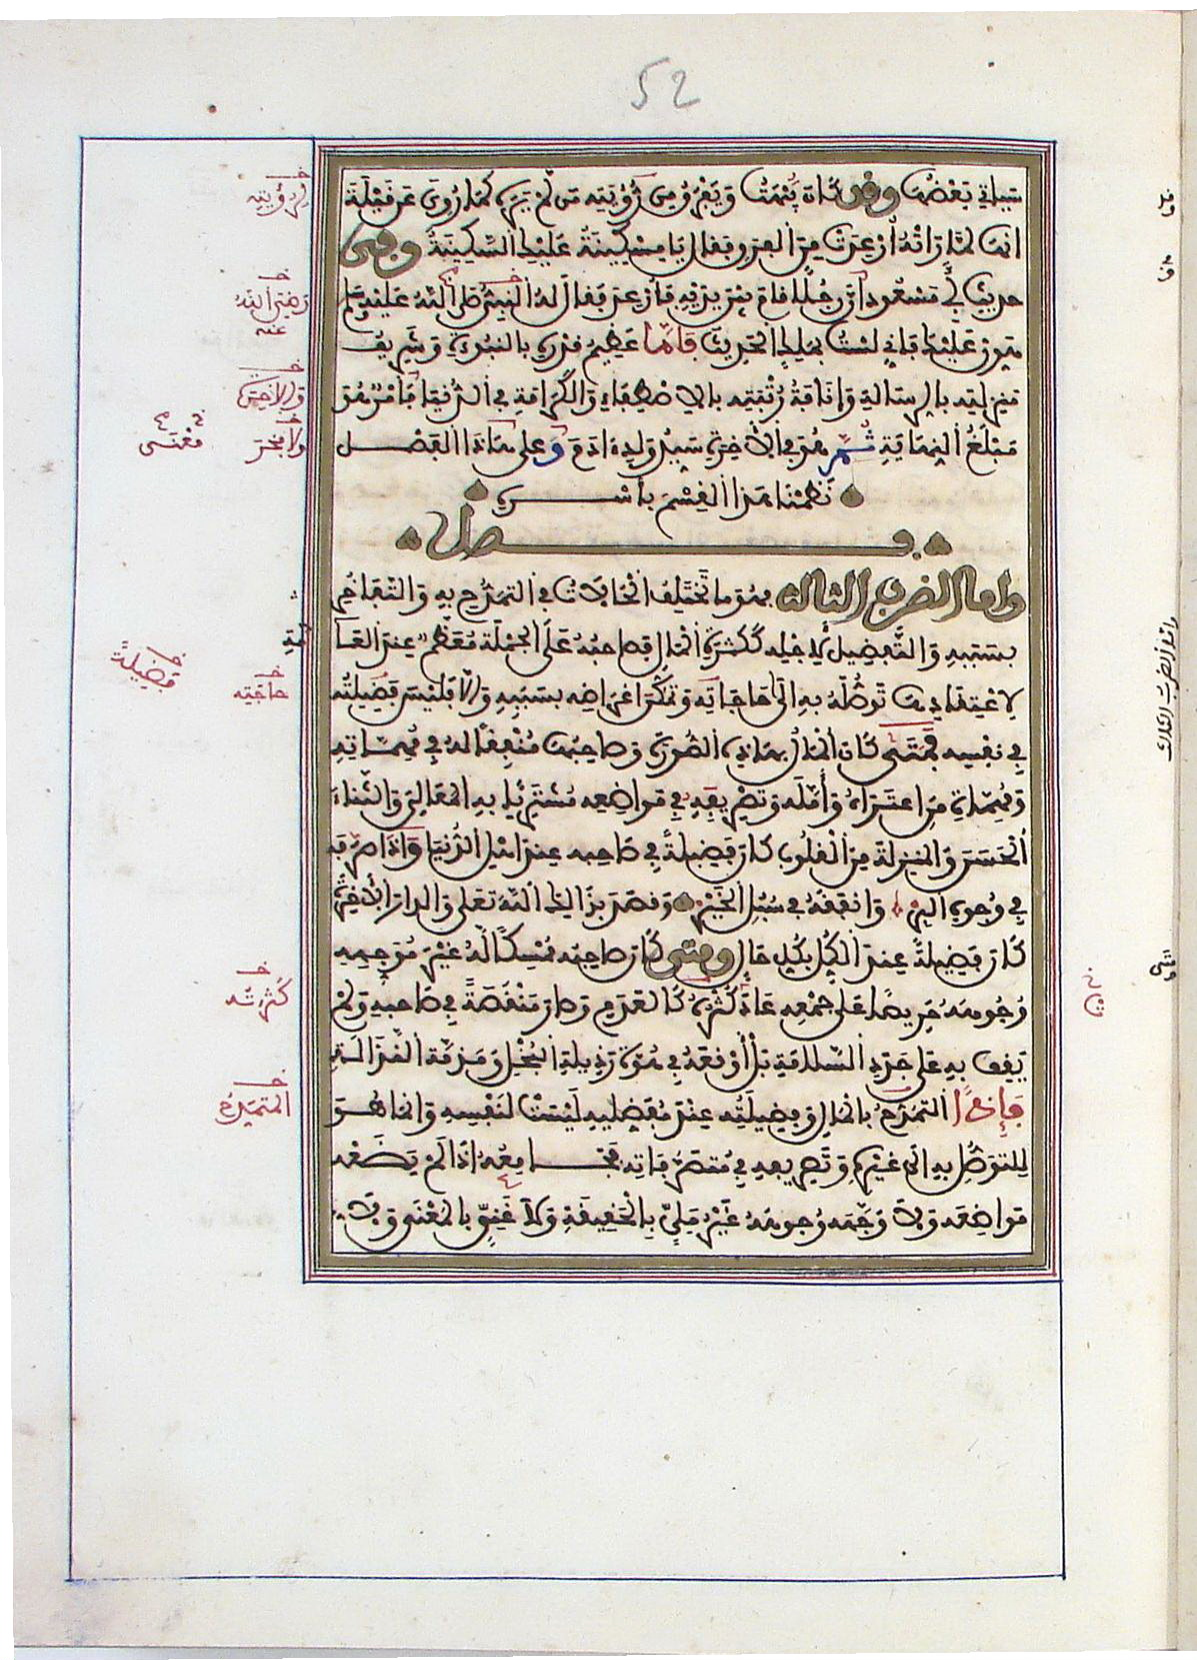 52
سياتي بعضها وقد كان يبهت ويفرق من رؤيته من لم يره كما روي عن قيلة
انها لما راته أرعدت من الفرق فقال يا مسكينة عليك السكينة وفي
حديث أبي مسعود ان رجلا قام بين يديه فأرعد فقال له النبي صلى الله عليه وسلم
هون عليك فاني لست بملك الحديث فاما عظيم قدره بالنبوة وشريف
منزلته بالرسالة وانافة رتبته بالاصطفاء والكرامة في الدنيا فأمر هو
مبلغ النهاية ثم هو في الآخرة سيد ولد ءادم وعلى هذا الفصل
نظمنا هذا القسم بأسره
فصل
واما الضرب الثالث فهو ما تختلف الحالات في التمدح به والتفاخر
بسببه والتفضيل لاجله ككثرة المال فصاحبه على الجملة معظم عند العامة
لاعتقادها توصله به الى حاجاته وتمكن اغراضه بسببه والا فليس فضيلة
في نفسه فمتى كان المال بهذه الصورة وصاحبه منفقا له في مهماته
ومهمات من اعتراه وأمله وتصريفه في مواضعه مشتريا به المعالي والثناء
الحسن والمنزلة من القلوب كان فضيلة في صاحبه عند اهل الدنيا واذا صرفه
في وجوه البر وانفقه في سبل الخير وقصد بذالك الله تعلى والدار الأخرة
كان فضيلة عند الكل بكل حال ومتى كان صاحبه ممسكا له غير موجهه
وجوهه حريصا على جمعه عاد كثره كالعدم وصار منقصة في صاحبه ولم
يقف به على جدد السلامة بل أوقعه في هوة رذيلة البخل ومذمة النذالة
فإذا التمدح بالمال وفضيلته عند مفضليه ليست لنفسه وانما هو
للتوصل به الى غيره وتصريفه في متصرفاته فجامعه اذا لم يضعه
مواضعه ولا وجهه وجوهه غير ملي بالحقيقة ولا غني بالمعنى ولا
لرؤيته
رضي الله
عنه
والاخرى
ولا فخر
معنى
فضيلة
حاجته
كثرته
المتمدح
واما الضرب الثالث